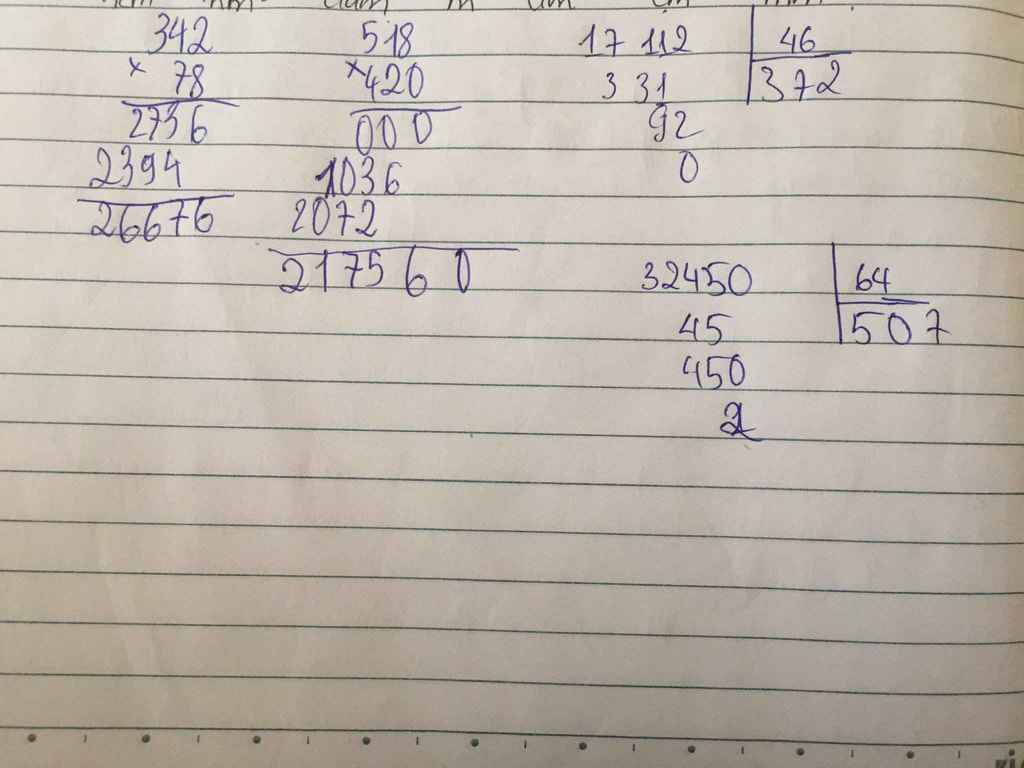 342 518 17 112 46
× 78 ×420 3 31 372
2736 000 92
2394 1036 0
26676 2072
217560 32450 64
45 507
450
2